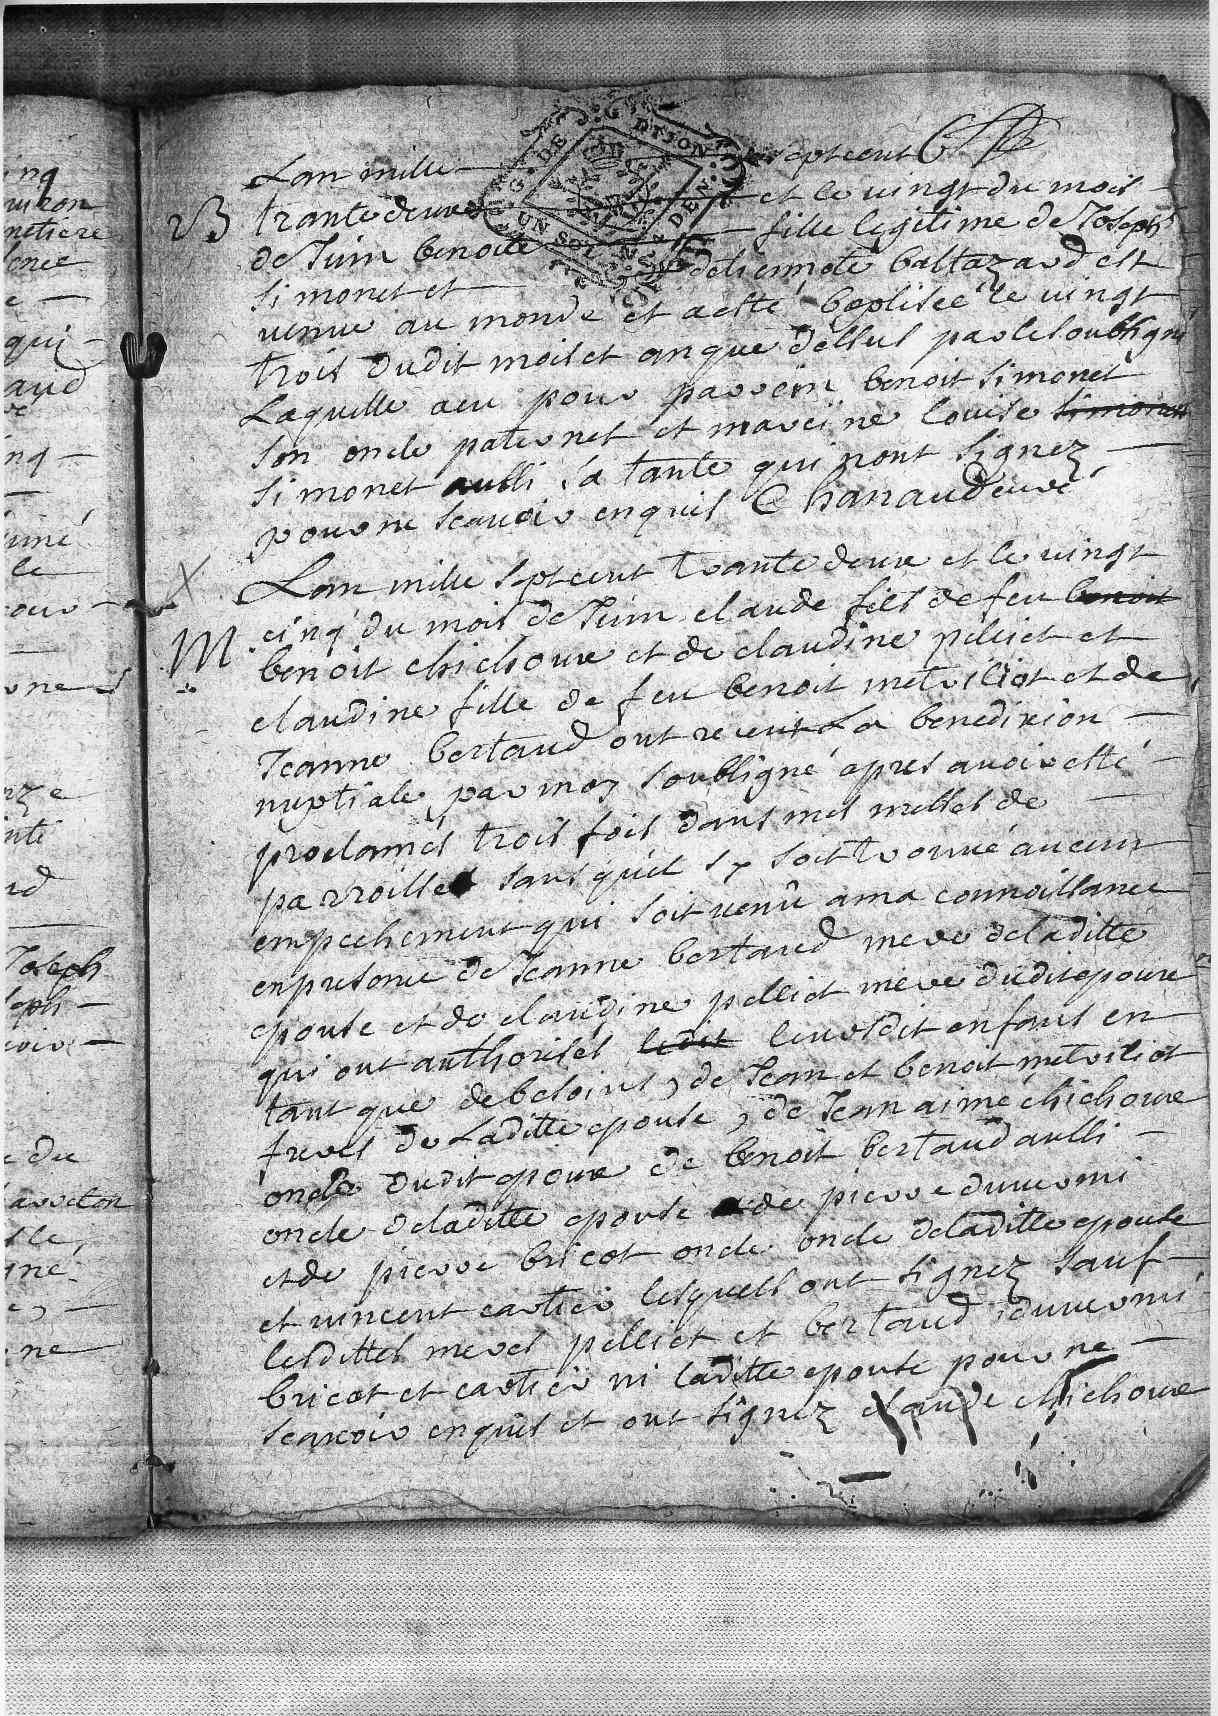 Lan mille septcent
B
trante deux et le vingt du mois
de Juin benoite fille legitime de Joseph
simonet et detiennote baltazard est
venue au monde et aesté baptisée le vingt
trois dudit mois et an que dessus par le soubsigné
Laquelle a eu pour parrein benoit simonet
son oncle paternel et mareine louise simonet
simonet aussi sa tante qui nont signez
pour ne scavoir enquis Chanaudeuvé
Lan mille sept cent trante deux et le vingt
M
cinq du mois de Juin claude fils de feu benoit
benoit chichoux et de claudine pelliet et
claudine fille de feu benoit metrillot et de
Jeanne bertaud ont receut La benedixion
nuptiale par moy soubsigné apres avoir esté
proclamés trois fois dans mes messes de
parroisse sans quil sy soit trouvé aucun
empechement qui soit venû a ma connoissance
en presence de Jeanne bertaud mere de laditte
epouse et de claudine pelliot mere dudit epoux
qui ont authorisés ledit leursdit enfans en
tant que de besoins, de Jean et benoit metrillot
freres de Laditte epouse, de Jean aimé chichoux
oncle dudit epoux de benoit bertaud aussi
oncle de laditte epouse de pierre duvermi
et de pierre bricot oncle oncle de laditte epouse
et vincent cartier lesquels ont signez sauf
lesdittes meres pelliot et bertaud duvermi
bricot et cartier ni laditte epouse pour ne
scavoir enquis et ont signez claude chichoux
G. DE DIJON
UN SOL
ing
netiere
qui
aud
inq
le
Joseph
du